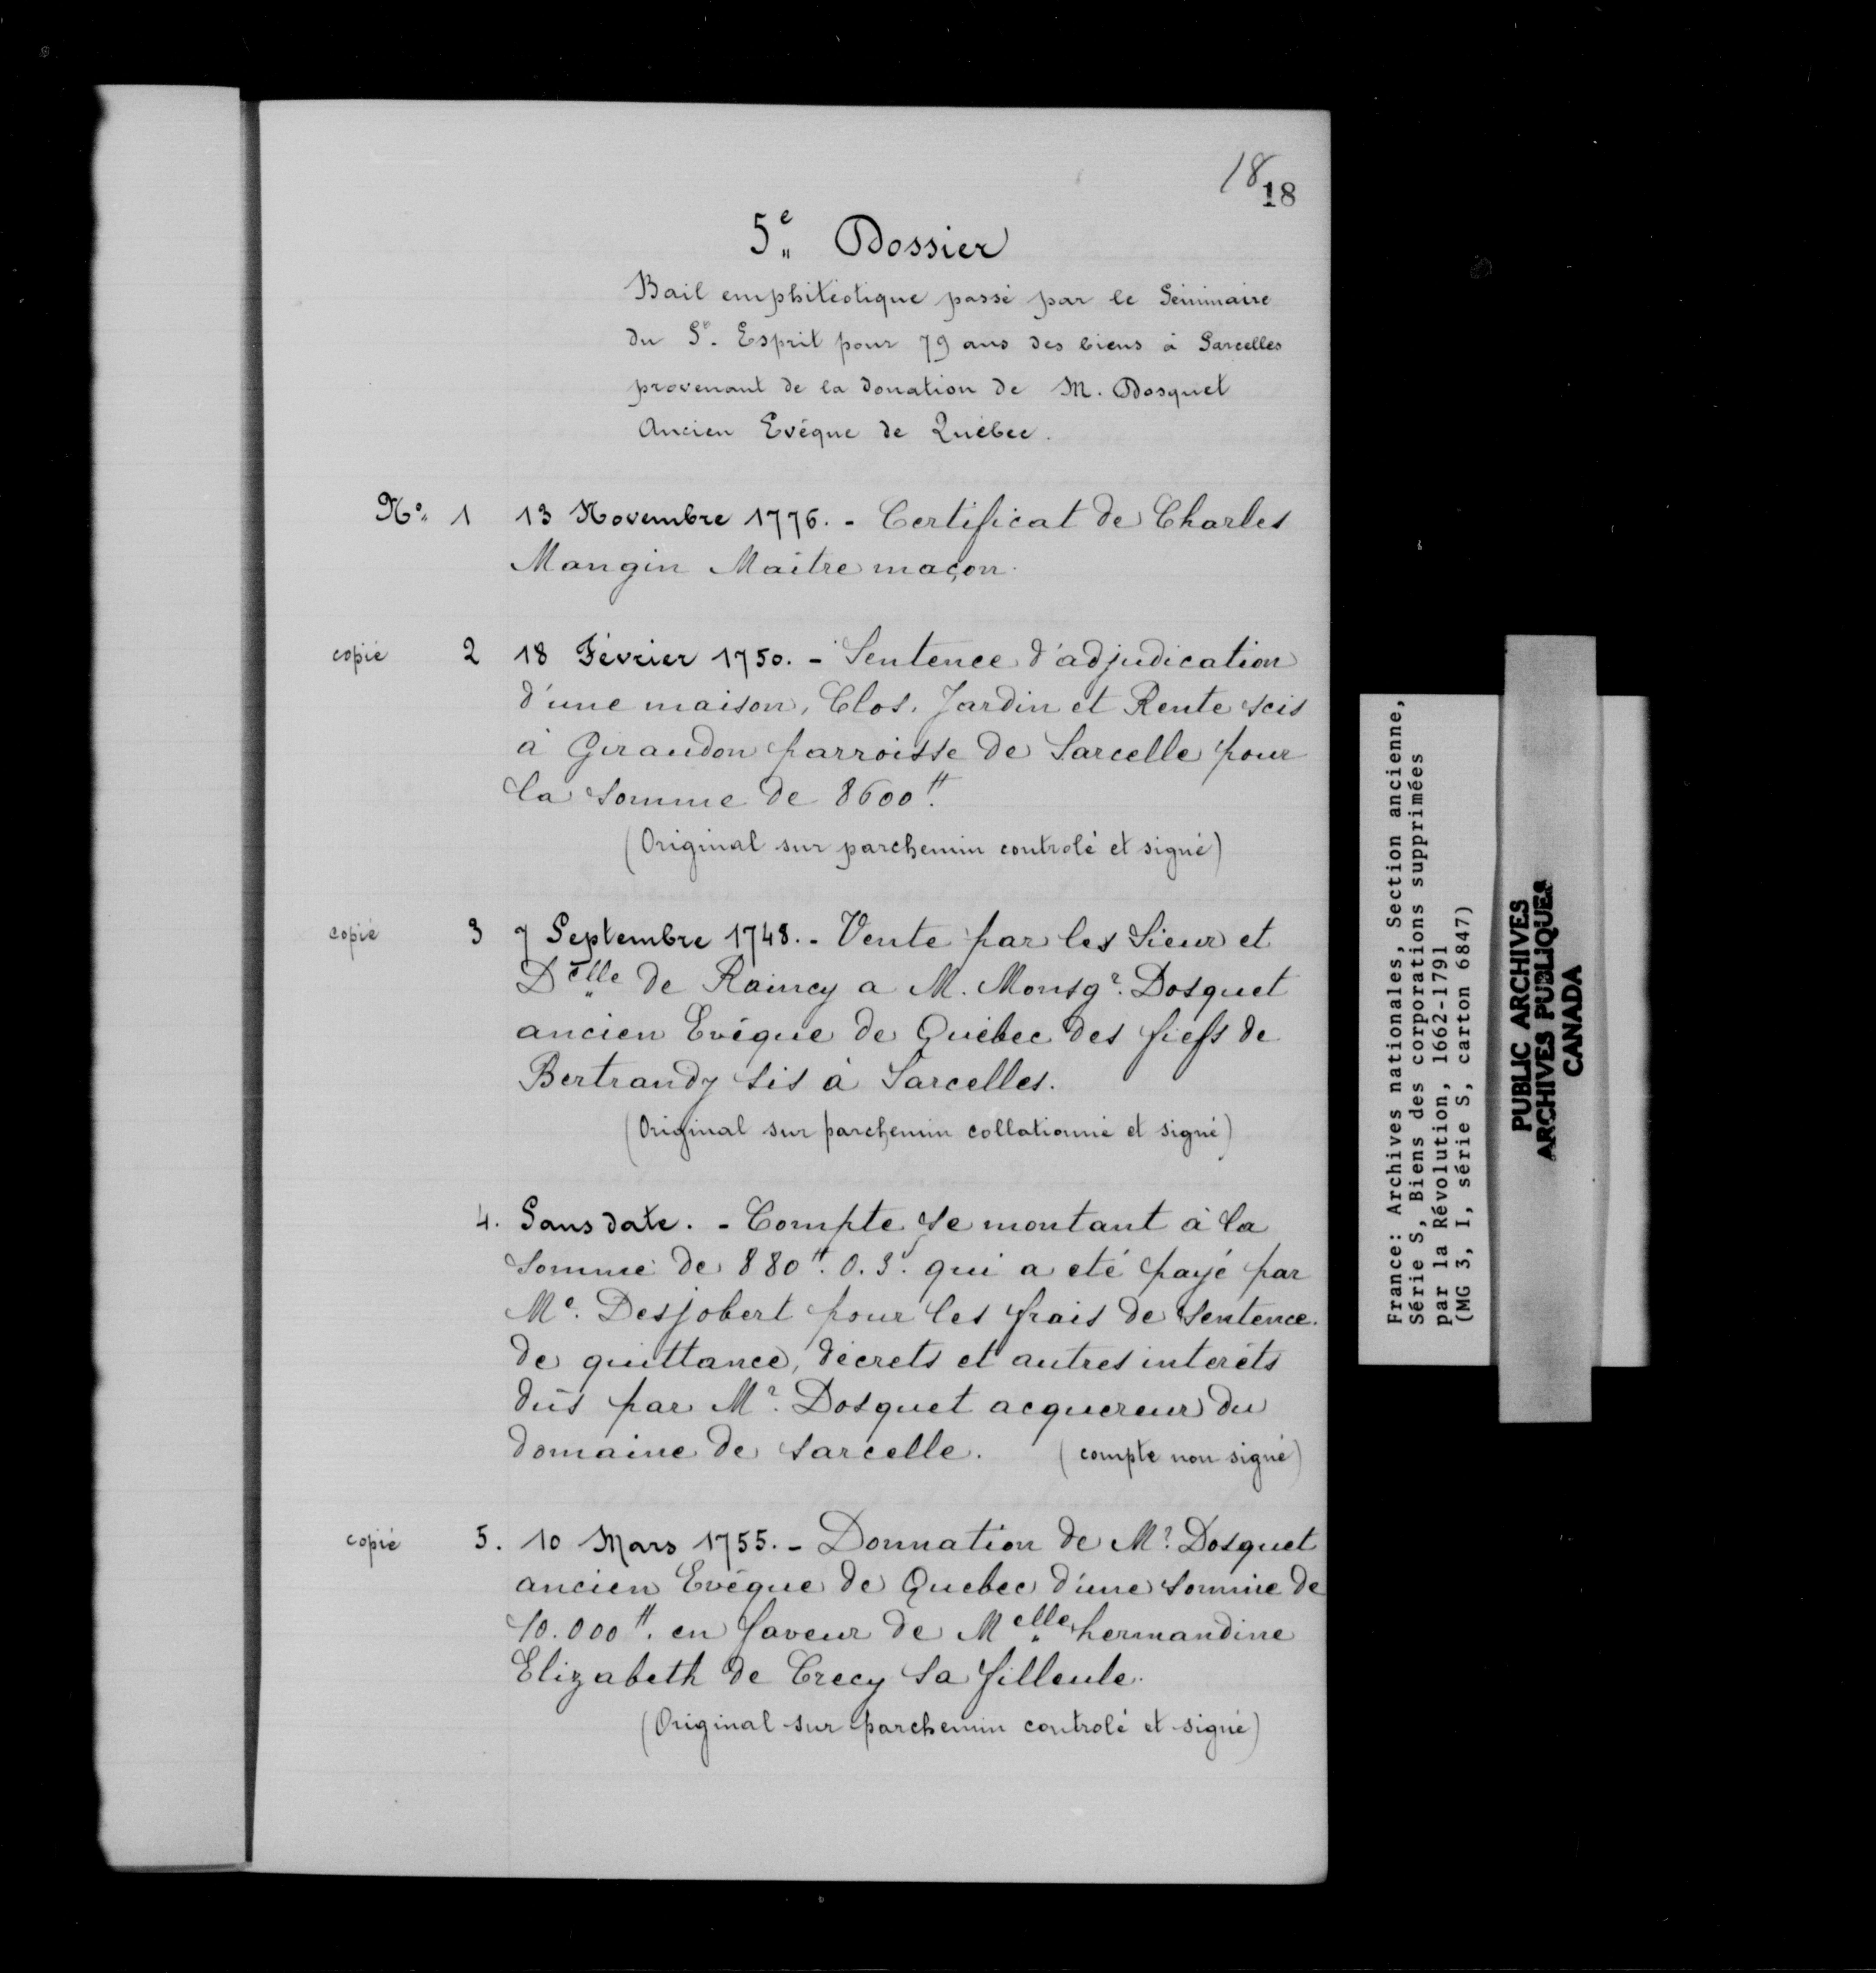 18
18
5e Dossier
Bail emphitéotique passé par le Séminaire
du St. Esprit pour 79 ans des biens à Sarcelles
provenant de la donation de M. Dosquet
Ancien Evéque de Québec.
No. 1 13 Novembre 1776. - Certificat de Charles
Mangin Maitre maçon.
copié 2 18 Février 1750. - Sentence d'adjudication
d'une maison, Clos, Jardin et Rente scis
à Giraudon parroisse de Sarcelle pour
la somme de 8600tt.
(Original sur parchemin controlé et signé)
copié 3 7 Septembre 1748. - Vente par les Sieur et
Delle de Raincy a M. Monsgr. Dosquet
ancien Evéque de Québec des fiefs de
Bertrandy sis à Sarcelles.
(Original sur parchemin collationné et signé)
4. Sans date. - Compte se montant à la
somme de 880tt. 0. 3d. qui a eté payé par
Me. Desjobert pour les frais de sentence.
de quittance, décrets et autres interéts
dus par Mr. Dosquet acquereur du
domaine de Sarcelle. (compte non signé)
copié 5. 10 Mars 1755. - Donnation de Mr. Dosquet
ancien Evéque de Quebec d'une somme de
10.000tt. en faveur de Melle hermandine
Elizabeth de Crecy sa filleule.
(Original sur parchemin controlé et signé)
France: Archives nationales, Section ancienne,
Série S, Biens des corporations supprimées
par la Révolution, 1662-1791
(MG 3, I, série S, carton 6847)
PUBLIC ARCHIVES
ARCHIVES PUBLIQUES
CANADA